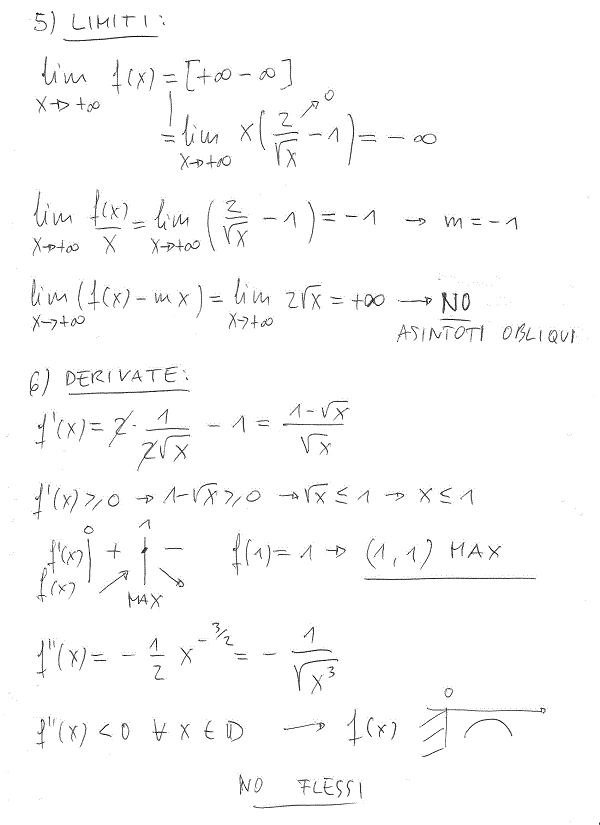 5) LIMITI:
lim x→+∞ f(x) = [+∞ - ∞]
= lim x→+∞ x(2/√x - 1) = -∞
0
lim x→+∞ f(x)/x = lim x→+∞ (2/√x - 1) = -1 → m = -1
lim x→+∞ (f(x) - mx) = lim x→+∞ 2√x = +∞ → NO
ASINTOTI OBLIQUI
6) DERIVATE:
f'(x) = 2 · 1/2√x - 1 = 1-√x/√x
f'(x) ≥ 0 → 1-√x ≥ 0 → √x ≤ 1 → x ≤ 1
0 1
f'(x) + - f(1) = 1 → (1,1) MAX
f(x) MAX
f''(x) = - 1/2 x^-3/2 = - 1/√x³
f''(x) < 0 ∀ x ∈ D → f(x) 0
NO FLESSI